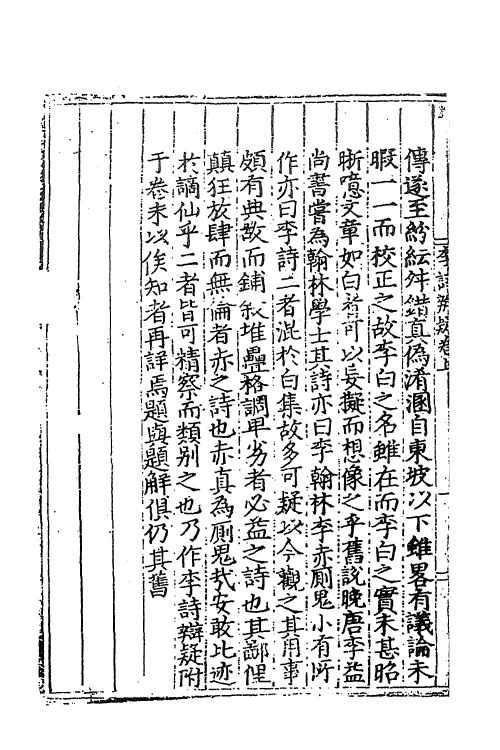 李詩辨疑卷上
傳遂至紛紜舛錯真偽淆溷自東坡以下雖畧有議論未
暇一一而校正之故李白之名雖在而李白之實未甚昭
晰噫文章如白者可以妄擬而想像之乎舊說晚唐李益
尚書嘗為翰林學士其詩亦曰李翰林李赤厠鬼小有所
作亦曰李詩二者混於白集故多可疑以今觀之其用事
頗有典故而鋪敘堆疊格調卑劣者必益之詩也其鄙俚
顛狂放肆而無倫者赤之詩也赤真為厠鬼哉安敢比迹
於謫仙乎二者皆可精察而類别之也乃作李詩辯疑附
于卷末以俟知者再詳焉題與題解俱仍其舊